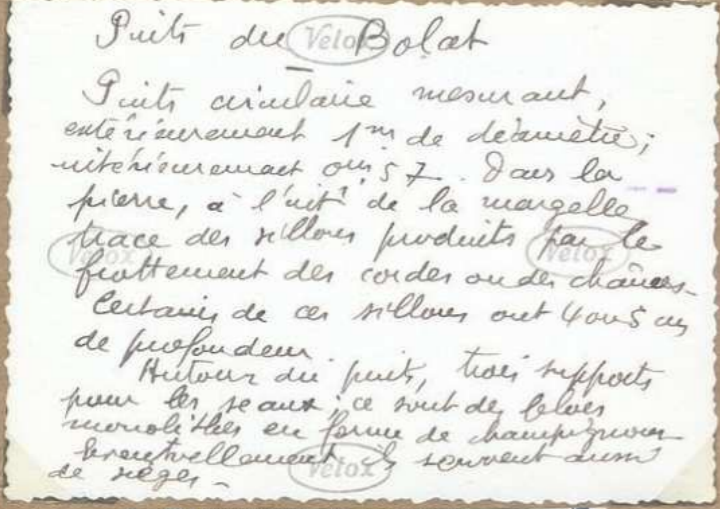 Puits du Bolat
Puits circulaire mesurant,
extérieurement 1m de diamètre ;
intérieurement 0m57. Dans la
pierre, à l'intr de la margelle
trace des sillons produits par le
frottement des cordes ou des chaînes.
Certains de ces sillons ont 4 ou 5 cm
de profondeur.
Autour du puits, trois supports
pour les seaux ; ce sont des blocs
monolithes en forme de champignons
Eventuellement ils servent aussi
de sièges.
Velox
Velox
Velox
Velox